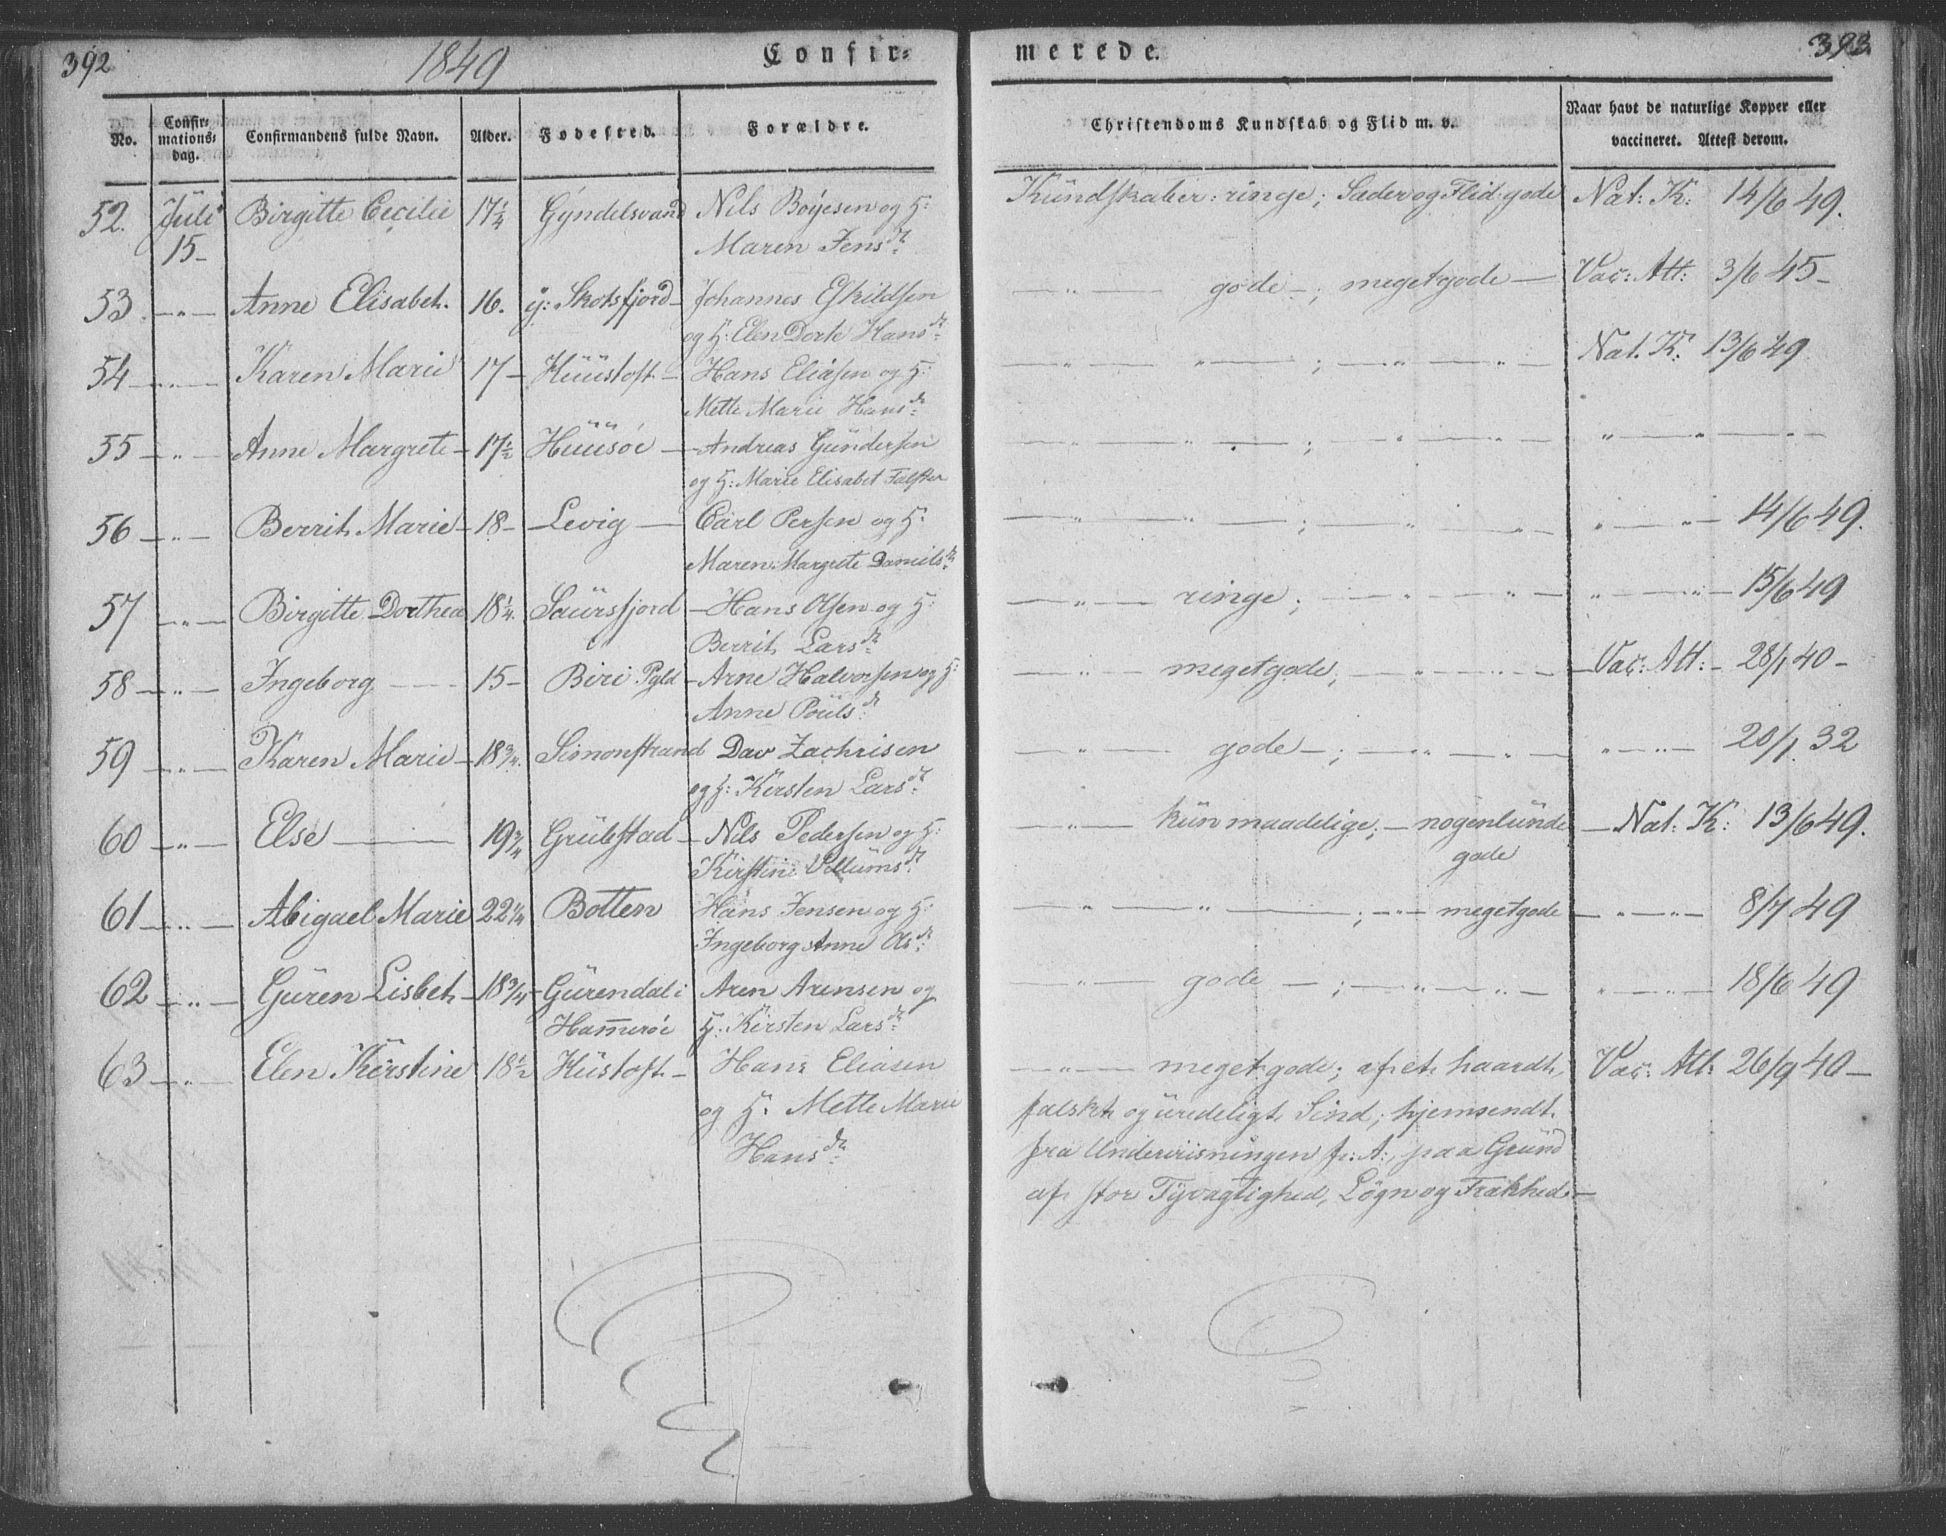 392 1849 Confir- merede. 393.
No. Confirmationsdag. Confirmandens fulde Navn. Alder. Fødested. Forældre. Christendoms Kundskab og Flid m. v. Naar havt de naturlige Kopper eller vaccineret. Attest derom.
52. Juli 15- Birgitte Cecilie 17 1/4 Gyndelsvand Nils Boyesen og H: Kundskaber: ringe; Sæder og Flid: gode Nat: K: 14/6 49.
Maren Jensdr
53. -"- Anne Elisabeth. 16. y: Skotsfjord- Johannes Eskildsen -"- gode-; meget gode- Vac: Att: 3/6 45-
og H: Elen Dorte Hansdr
54 -"- Karen Marie 17- Huustoft- Hans Eliasen og H: -"- "-; -"-"- Nat. K: 13/6 49
Mette Marie Hansdr
55 -"- Anne Margrete- 17 1/2 Huusøe- Andreas Gundersen -"- "-; -"-"- "-"-
og H: Marie Elisabet Falster
56 -"- Berrit Marie- 18- Levig- Carl Persen og H: -"- "-; "-"- "-"- 14/6 49.
Maren Margrete Danielsdr
57 -"- Birgitte Dorthea 18 1/4. Saursfjord- Hans Olsen og H: -"- ringe; -"-"- "-"- 15/6 49
Berrit Larsdr
58 -"- Ingeborg 15- Biri Pgld- Arne Halvorsen og H: -"- meget gode; -"-"- Vac: Att:- 28/1 40-
Anne Poulsdr
59 -"- Karen Marie- 18 3/4. Simonstrand Dav Zachrisen -"- gode-; -"-"- "-"- 20/1. 32
og H: Kirsten Larsdr
60 -"- Else 19 3/4 Grubstad- Nils Pedersen og H: -"- kun maadelige;- nogenlunde -Nat: K: 13/6 49.
Kirstine Villumsdr gode
61 -"- Abigael Marie 22 1/4 Botten Hans Jensen og H: -"- "-; -"- meget gode -"-"- 8/7 49
Ingeborg Anne Olsdr
62 -"- Guren Lisbet- 18 3/4- Gurendal i Aren Arensen og -"- gode-; -"-"- "-"- 18/6 49
Hamerøe H: Kirsten Larsdr
63 -"- Elen Kirstine 18 1/2 Hustoft- Hans Eliasen -"- meget gode; af et haardt, Vac: Att: 26/9 40-
og H: Mette Marie falskt og uredeligt Sind; hjemsendt
Hansdr fra Underviisningen f: A: paa Grund
af stor Tyvagtighed, Løgn og Frækhed.-